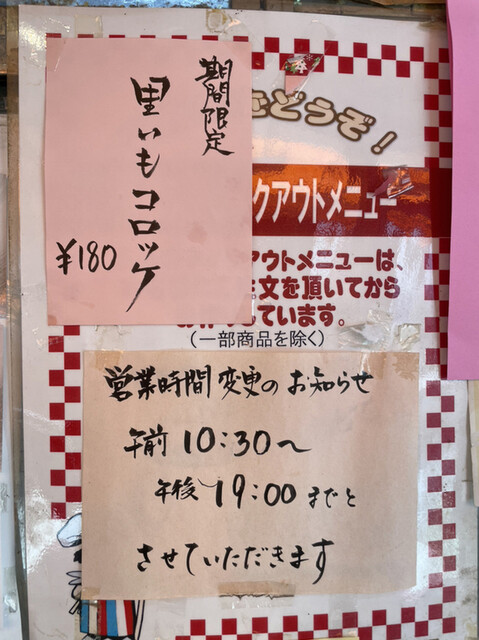 期間限定
里いもコロッケ
¥180
どうぞ!
クアウトメニュー
アウトメニューは、
注文を頂いてから
しています。
(一部商品を除く)
営業時間変更のお知らせ
午前10:30〜
午後19:00までと
させていただきます